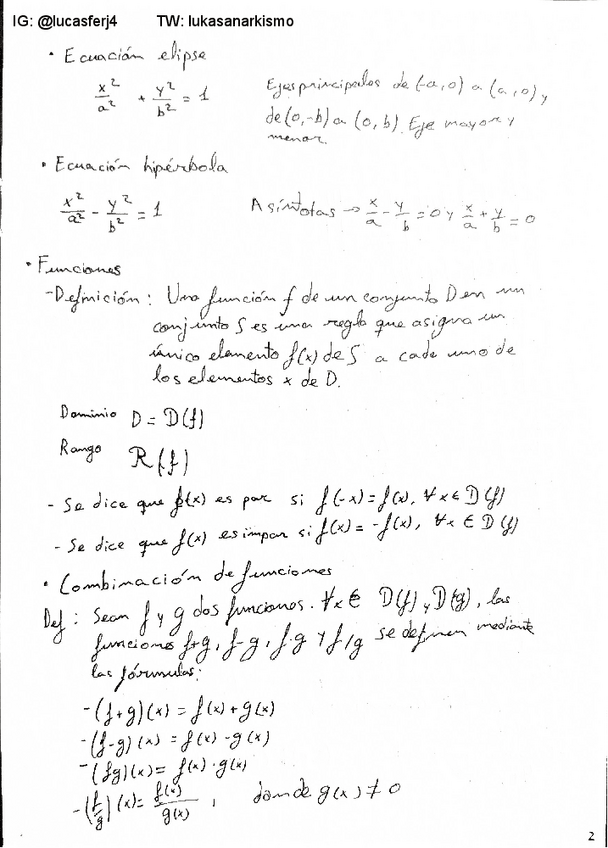 IG: @lucasferj4 TW: lukasanarkismo
• Ecuación elipse
x²/a² + y²/b² = 1
Ejes principales de (-a,0) a (a,0) y
de (0,-b) a (0,b). Eje mayor y
menor.
• Ecuación hipérbola
x²/a² - y²/b² = 1
Asíntotas → x/a - y/b = 0 y x/a + y/b = 0
• Funciones
- Definición: Una función f de un conjunto D en un
conjunto S es una regla que asigna un
único elemento f(x) de S a cada uno de
los elementos x de D.
Dominio D = D(f)
Rango R(f)
- Se dice que f(x) es par si f(-x) = f(x), ∀x ∈ D(f)
- Se dice que f(x) es impar si f(x) = -f(x), ∀x ∈ D(f)
• Combinación de funciones
Def: Sean f y g dos funciones. ∀x ∈ D(f) y D(g), las
funciones f+g, f-g, f·g y f/g se definen mediante
las fórmulas:
- (f+g)(x) = f(x) + g(x)
- (f-g)(x) = f(x) - g(x)
- (fg)(x) = f(x) · g(x)
- (f/g)(x) = f(x)/g(x), donde g(x) ≠ 0
2